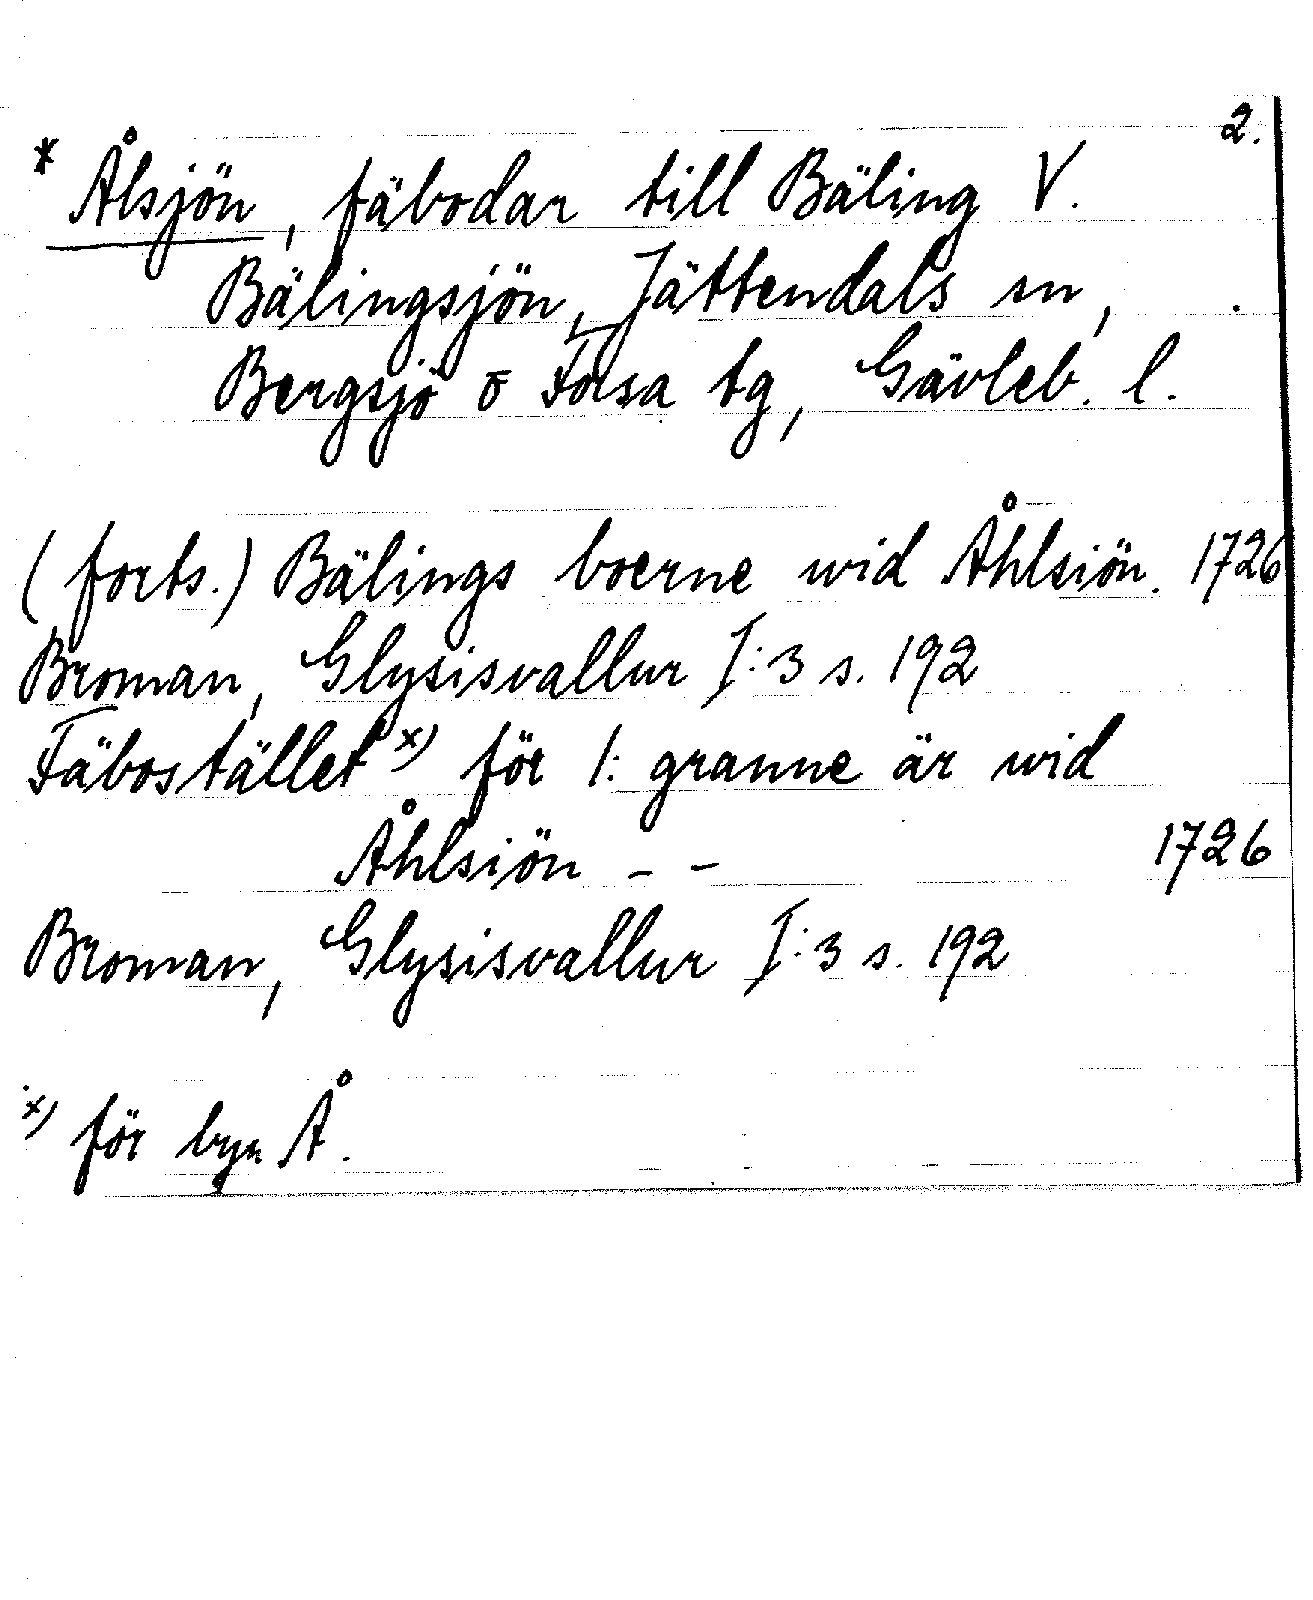 2.
* Ålsjön, fäbodar till Bäling V.
Bälingsjön, Jättendals sn,
Bergsjö o Forsa tg, Gävleb. l.
(forts.) Bälings boerne wid Åhlsiön. 1726
Broman, Glysisvallur I:3 s. 192
Fäbostället x) för 1: granne är wid
Åhlsiön – – 1726
Broman, Glysisvallur I:3 s. 192
x) för byn Å.